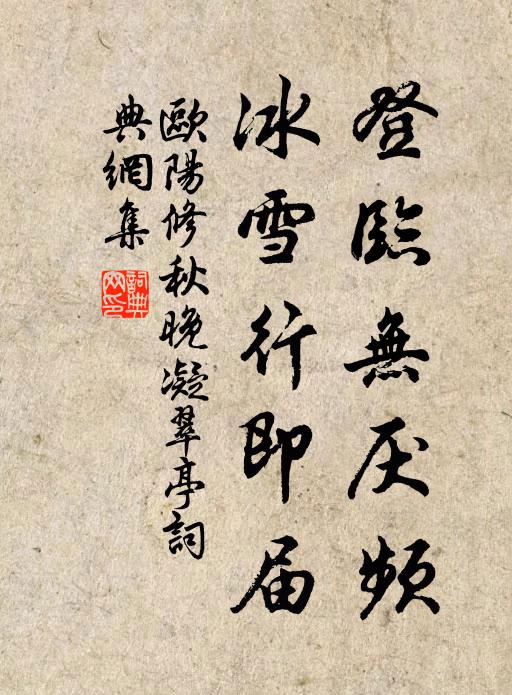 登臨無厌頻
冰雪行即届
歐陽修秋晚凝翠亭詞
典網集
詞典網印